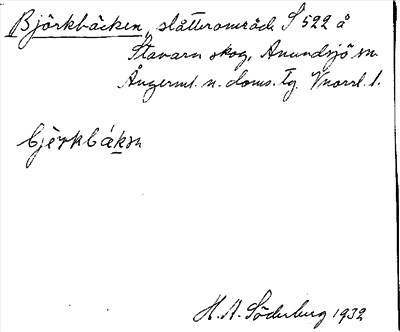 Björkbäcken, slåtterområde S 522 å
Stavarn skog, Anundsjö sn
Ångerml. n. doms. tg. Vnorrl. l.
bjèrkbákɴ
H. A. Söderberg 1932